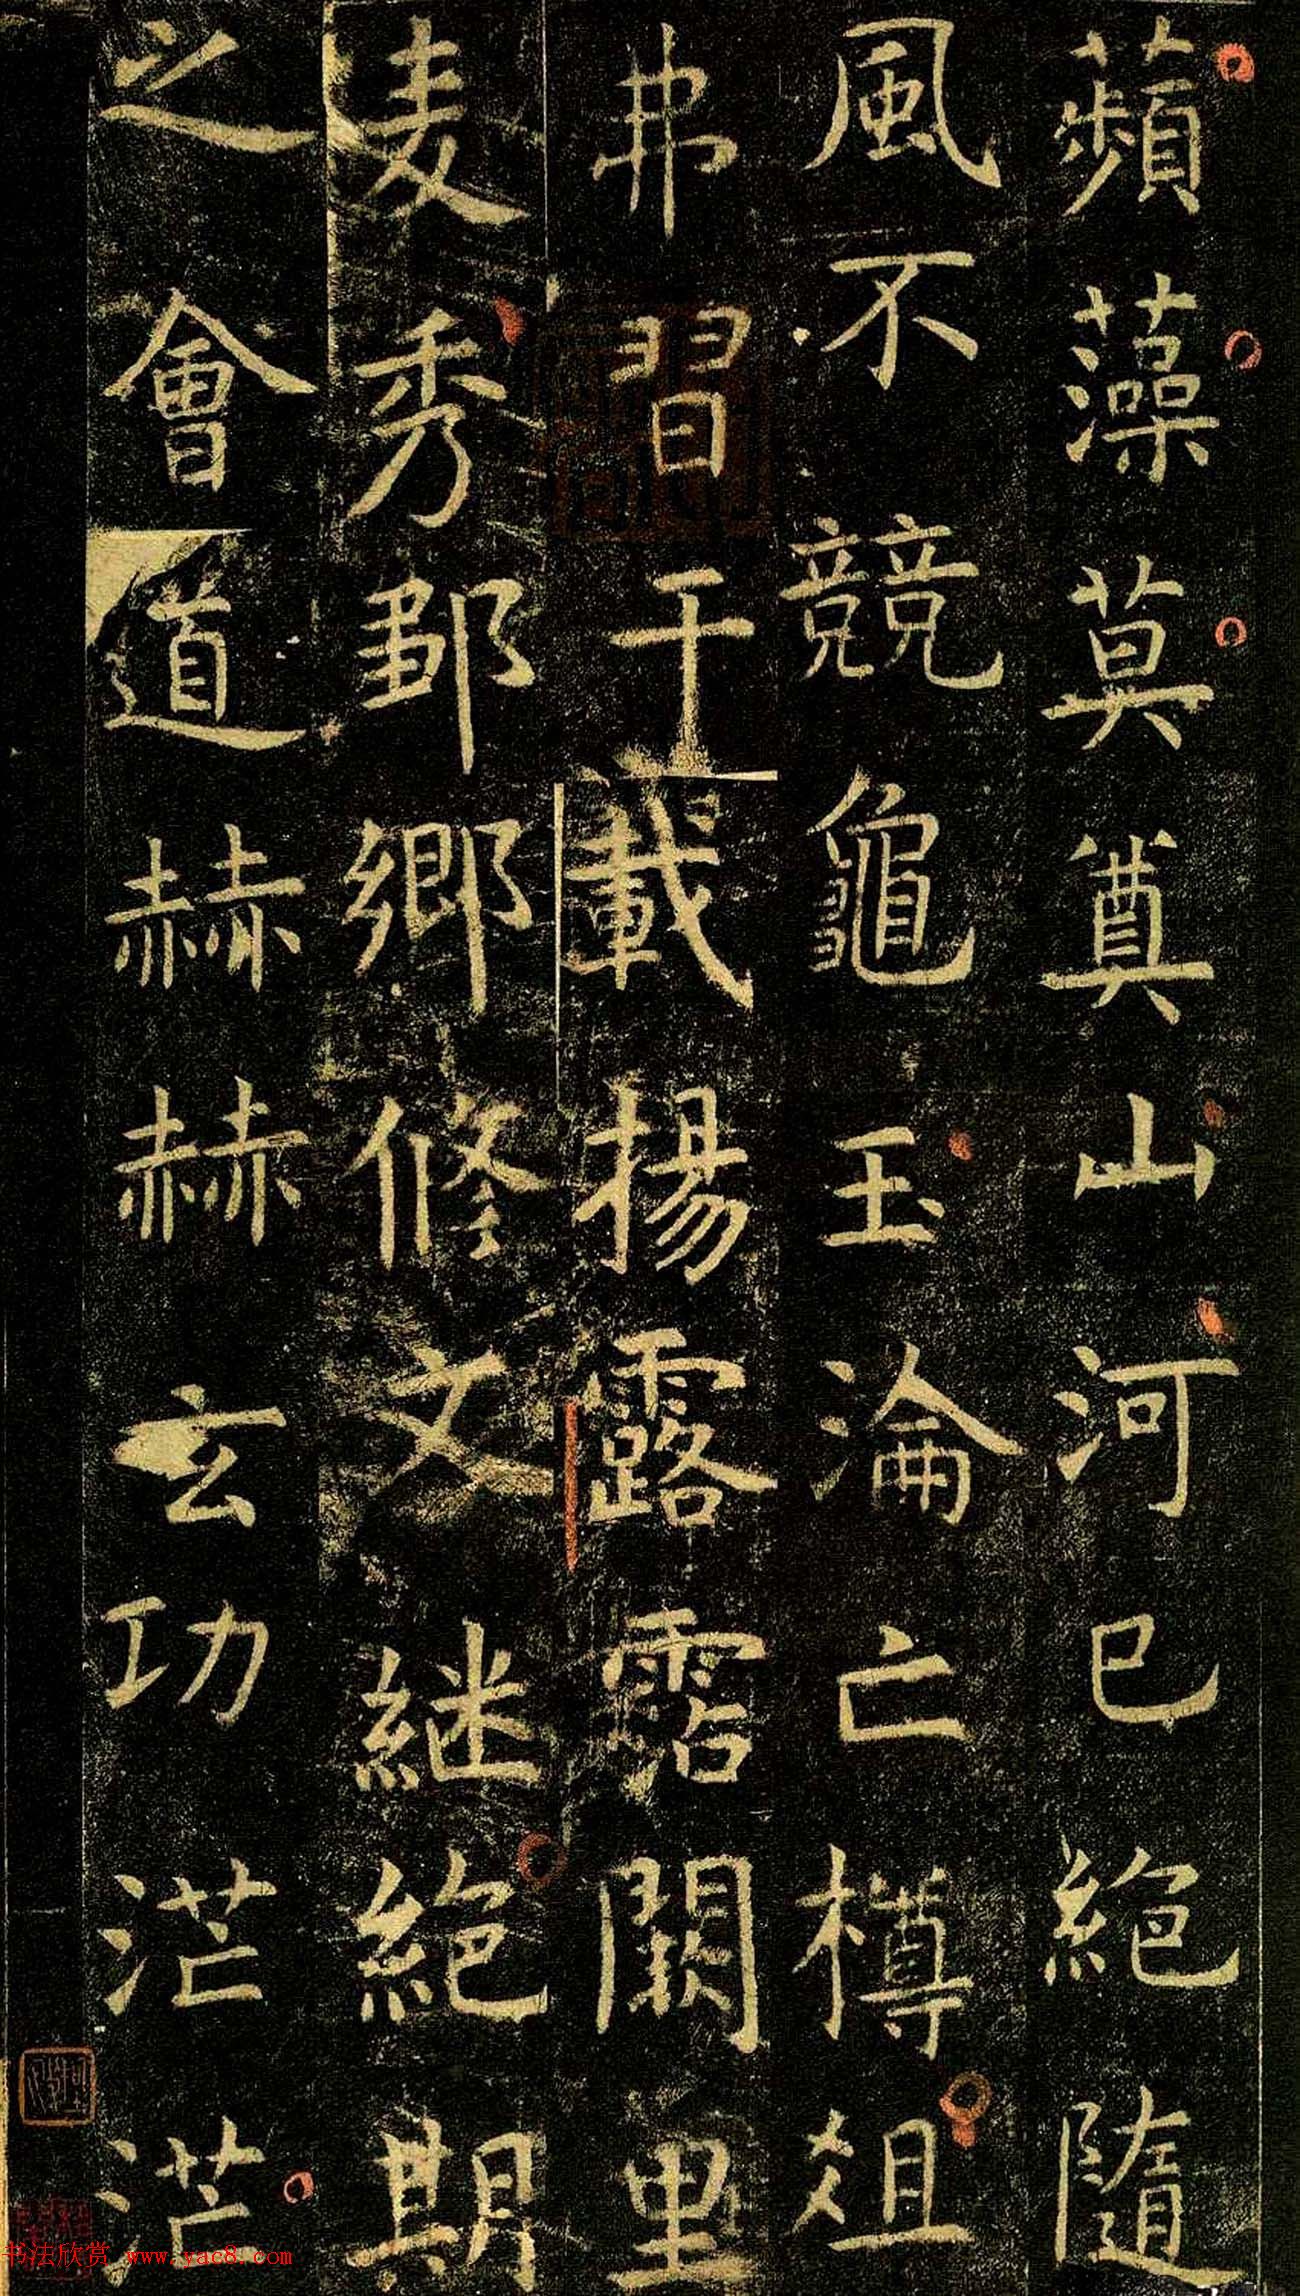 蘋藻莫奠山河已絶隨
風不競龜玉淪亡樽俎
弗習干戢揚露霑闕里
麦秀鄒鄉修文継絶期
之會道赫赫玄功茫茫
书法欣赏 www.yac8.com